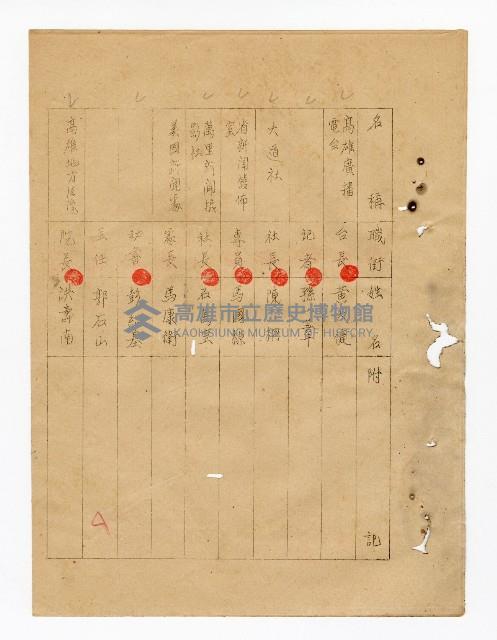 名稱 職銜 姓名 附記
高雄廣播電台 台長
記者 孫
大道社 社長 陳
省新聞發佈室 專員 馬
萬里新聞攝影社 社長
美國新聞處 處長 馬康衛
秘書 彭
主任 郭石山
高雄地方法院 院長 洪壽南
高雄市立歷史博物館
KAOHSIUNG MUSEUM OF HISTORY